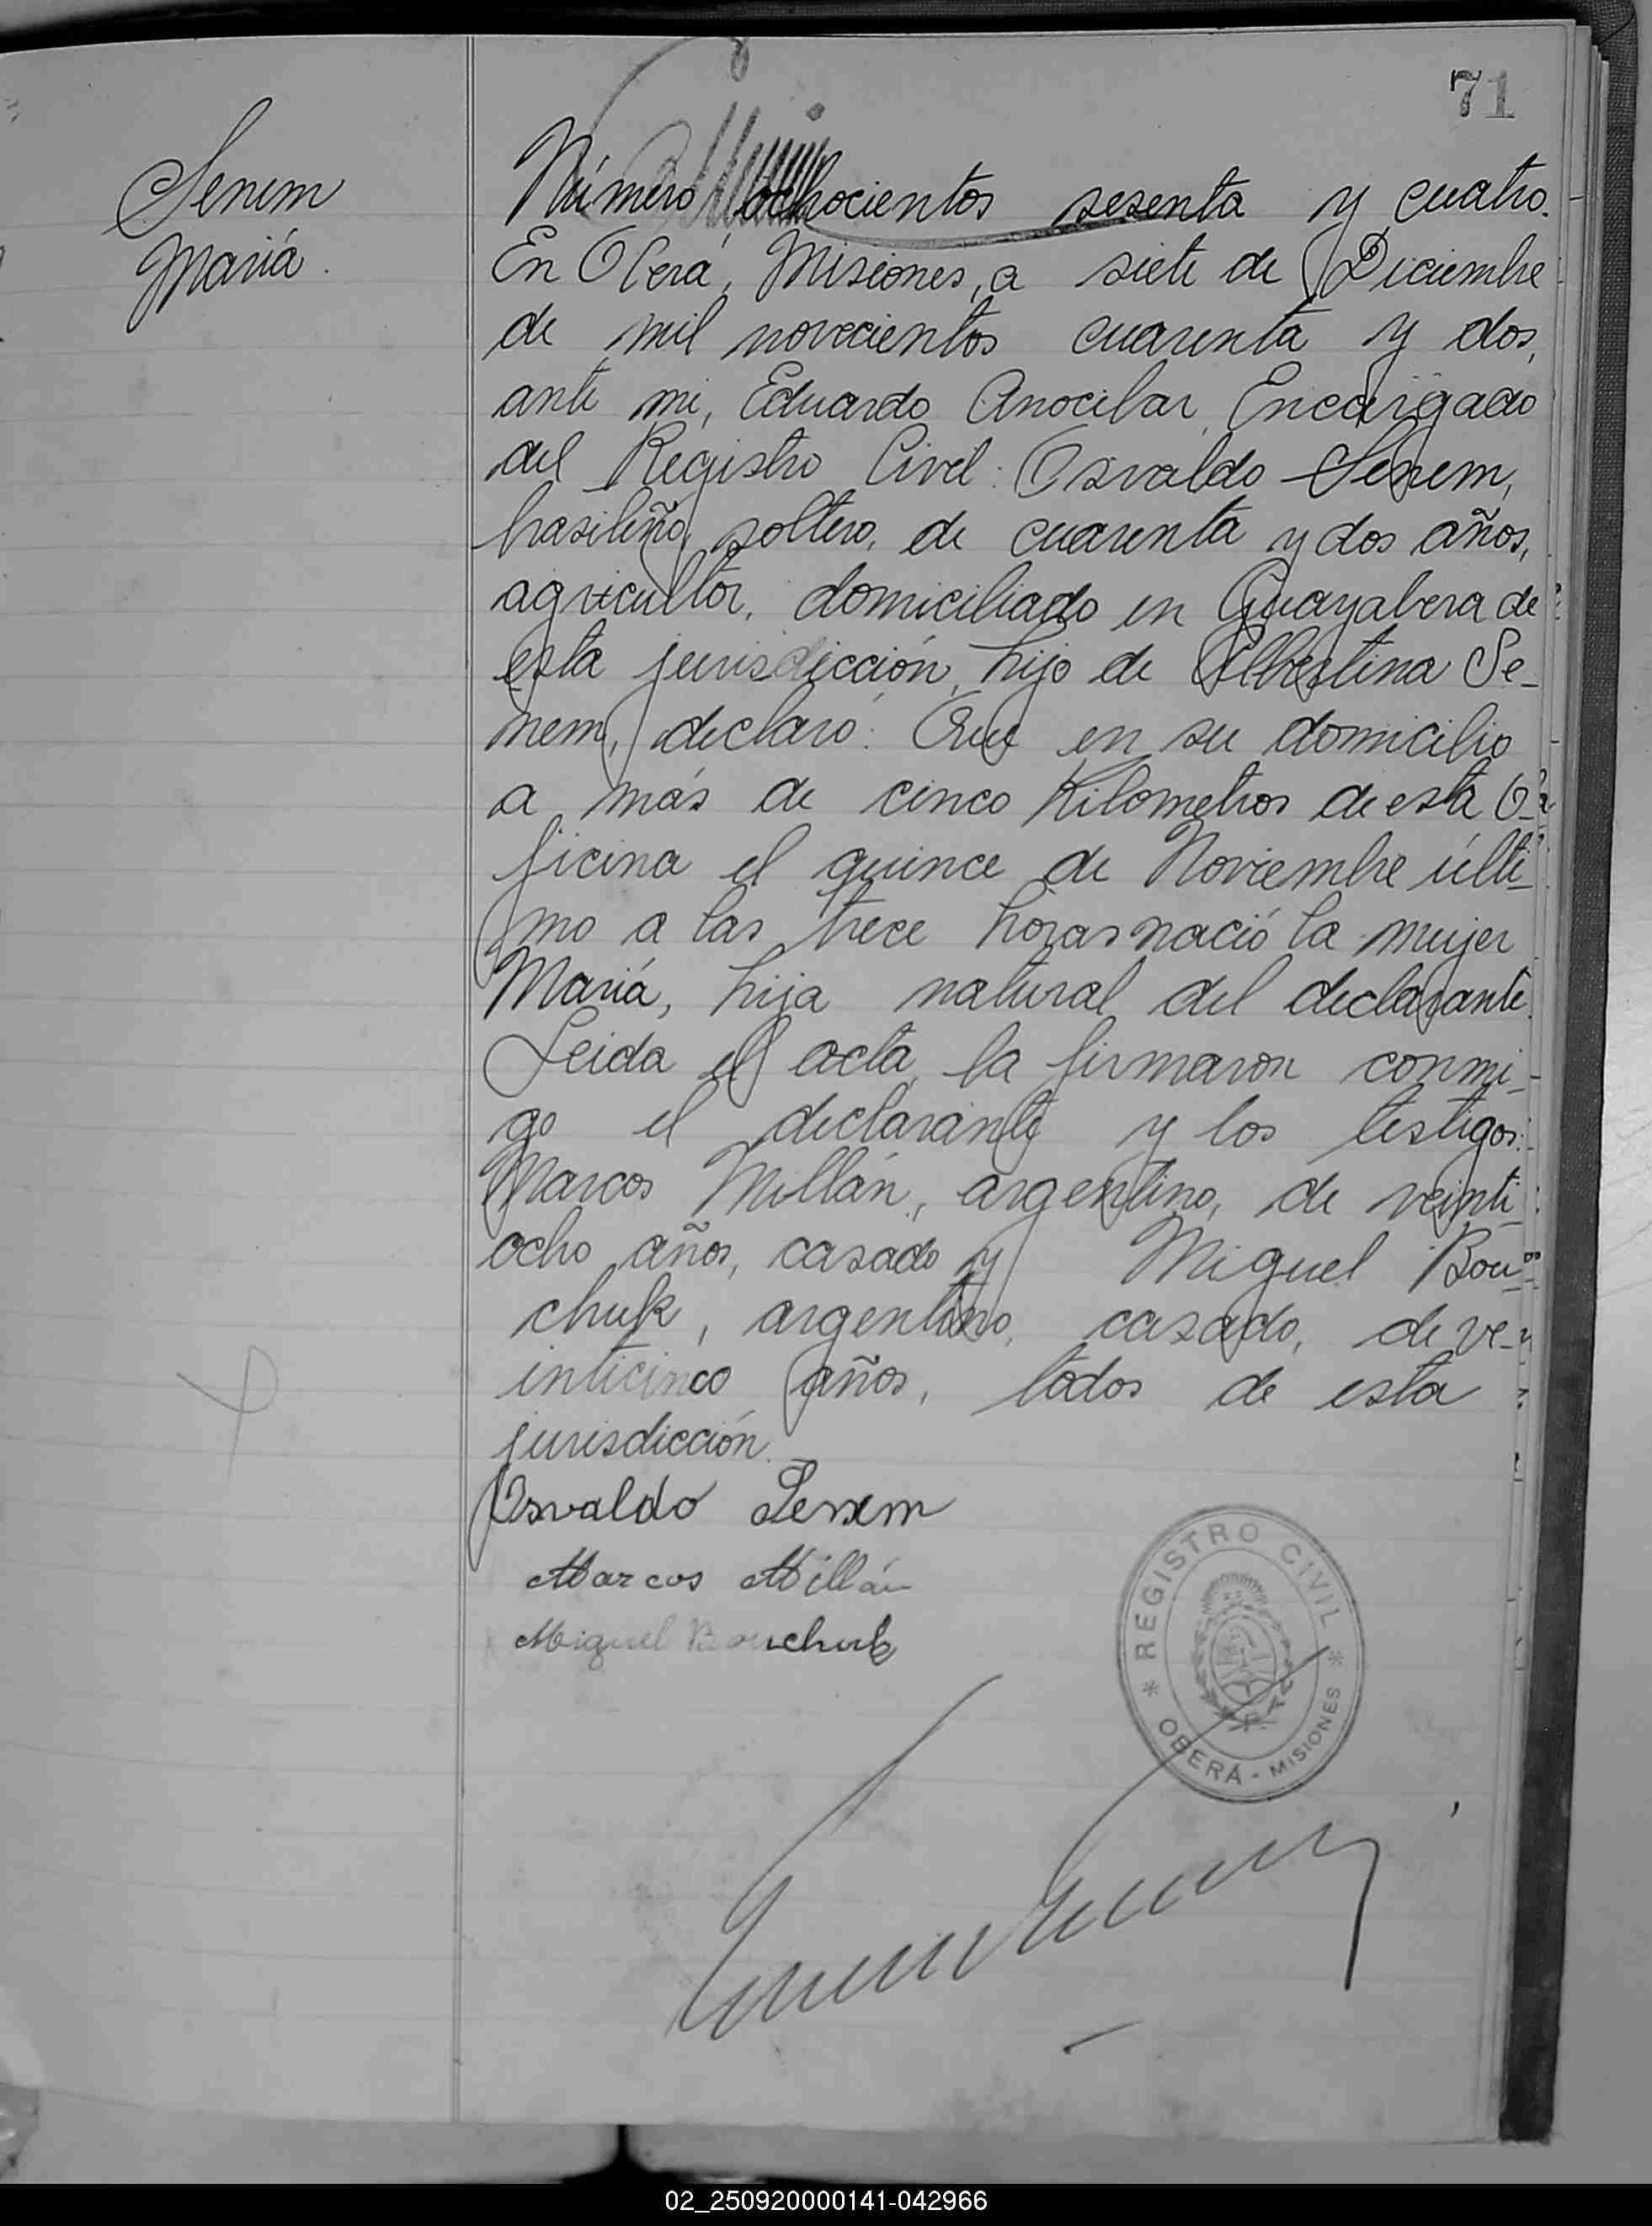 71
Senem
Mariá.
Número ochocientos sesenta y cuatro.
En Oberá, Misiones, a siete de Diciembre
de mil novecientos cuarenta y dos,
ante mi, Eduardo Anocibar, Encargado
del Registro Civil: Osvaldo Senem,
brasileño, soltero, de cuarenta y dos años,
agricultor, domiciliado en Guayabera de
esta jurisdicción, hijo de Albertina Se-
nem, declaró: Que en su domicilio
a más de cinco Kilometros de esta O-
ficina el quince de Noviembre últi-
mo a las trece horas nació la mujer
Mariá, hija natural del declarante.
Leida el acta, la firmaron conmi-
go el declarante y los testigos:
Marcos Millán, argentino, de veinti-
ocho años, casado y Miguel Bou-
chuk, argentino, casado, de ve-
inticinco años, todos de esta
jurisdicción.
Osvaldo Senem
Marcos Millán
Miguel Bouchuk
* REGISTRO CIVIL *
OBERÁ - MISIONES
02_250920000141-042966